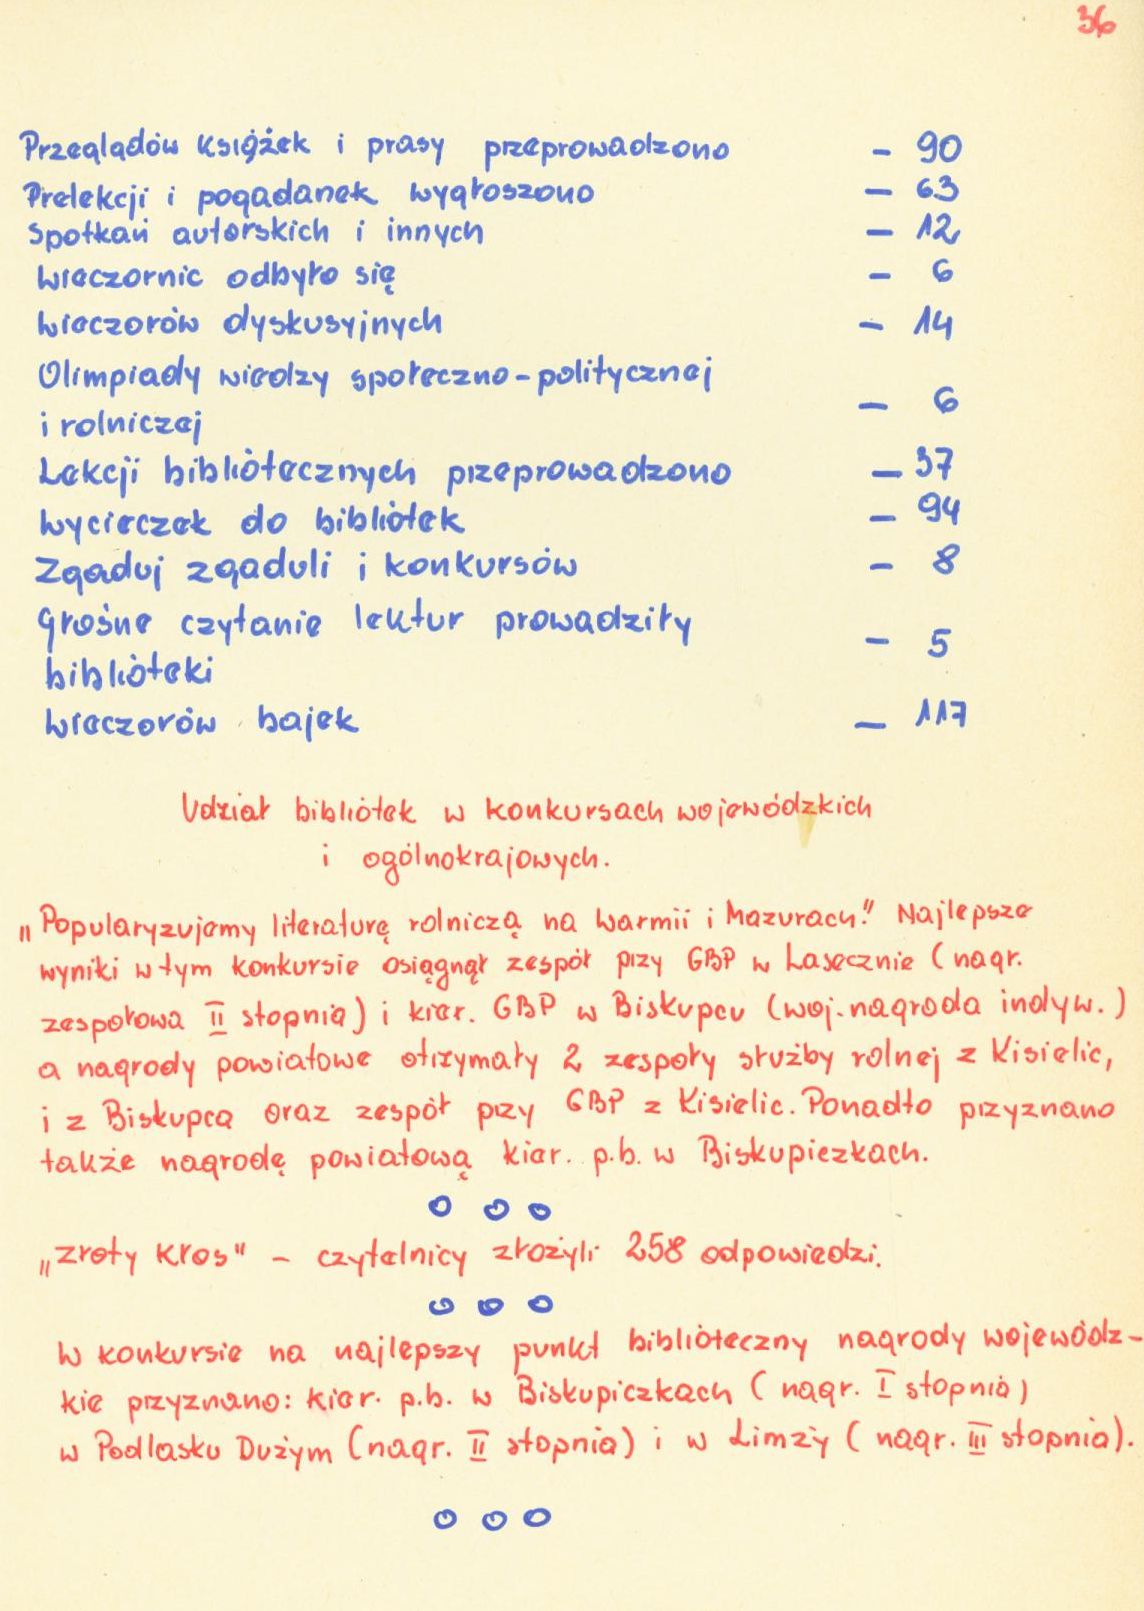 36
Przeglądów książek i prasy przeprowadzono – 90
Prelekcji i pogadanek wygłoszono – 63
Spotkań autorskich i innych – 12
Wieczornic odbyło się – 6
Wieczorów dyskusyjnych – 14
Olimpiady wiedzy społeczno-politycznej
i rolniczej – 6
Lekcji bibliotecznych przeprowadzono – 37
Wycieczek do bibliotek – 94
Zgaduj zgaduli i konkursów – 8
Głośne czytanie lektur prowadziły – 5
biblioteki
Wieczorów bajek – 117
Udział bibliotek w konkursach wojewódzkich
i ogólnokrajowych.
„Popularyzujemy literaturę rolniczą na Warmii i Mazurach." Najlepsze
wyniki w tym konkursie osiągnął zespół przy GBP w Łasecznie (nagr.
zespołowa II stopnia) i kier. GBP w Biskupcu (woj. nagroda indyw.)
a nagrody powiatowe otrzymały 2 zespoły służby rolnej z Kisielic,
i z Biskupca oraz zespół przy GBP z Kisielic. Ponadto przyznano
także nagrodę powiatową kier. p.b. w Biskupiczkach.
o o o
„Złoty Kłos" – czytelnicy złożyli 258 odpowiedzi.
o o o
W konkursie na najlepszy punkt biblioteczny nagrody wojewódz-
kie przyznano: kier. p.b. w Biskupiczkach (nagr. I stopnia)
w Podlasku Dużym (nagr. II stopnia) i w Limży (nagr. III stopnia).
o o o